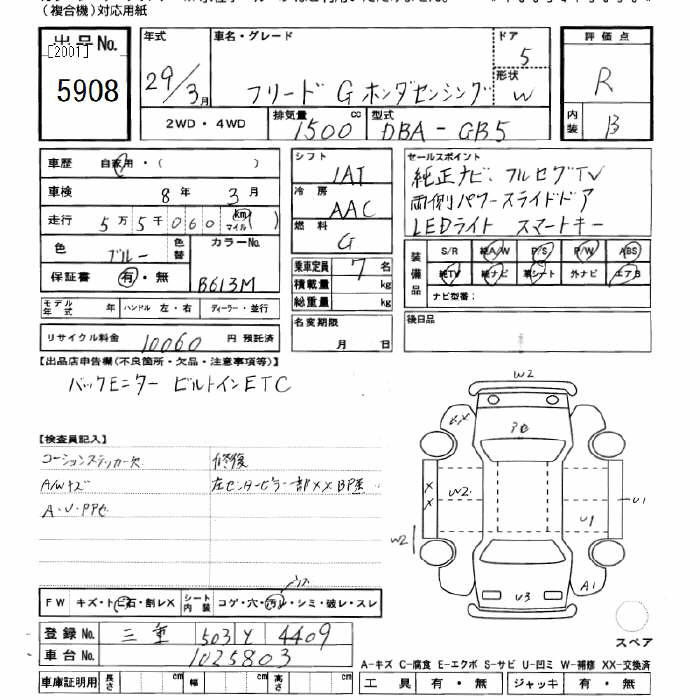 （複合機）対応用紙
出品No.
[2001]
5908
年式
29/3月
車名・グレード
フリード G ホンダセンシング
ドア
5
形状
W
2WD・4WD
排気量
1500
cc
型式
DBA-GB5
評価点
R
内装
B
車歴
自家用・（　）
車検
8年 3月
走行
5万5千060
km
マイル
色
ブルー
色替
カラーNo.
B613M
保証書
有・無
モデル年式
年
ハンドル 左・右
ディーラー・並行
リサイクル料金
10060
円 預託済
シフト
IAT
冷房
AAC
燃料
G
乗車定員
7名
積載量
kg
総重量
kg
名変期限
月 日
セールスポイント
純正ナビ フルセグTV
両側パワースライドドア
LEDライト スマートキー
装備品
S/R
純A/W
P/S
P/W
ABS
純TV
純ナビ
革シート
外ナビ
エアB
ナビ型番：
後日品
【出品店申告欄(不良箇所・欠品・注意事項等)】
バックモニター ビルトインETC
【検査員記入】
コーションステッカー欠
修復
A/Wキズ
左センターピラー部XX BP歪
A・U・PP
W2
XX
W2
U1
U1
W2
A1
U3
スペア
FW
キズ・トビ石・割レX
シート内装
コゲ・穴・汚レ・シミ・破レ・スレ
登録No.
三重 503 4409
車台No.
1025803
車庫証明用
長さ
cm
幅
cm
高さ
cm
A-キズ C-腐食 E-エクボ S-サビ U-凹ミ W-補修 XX-交換済
工具
有・無
ジャッキ
有・無